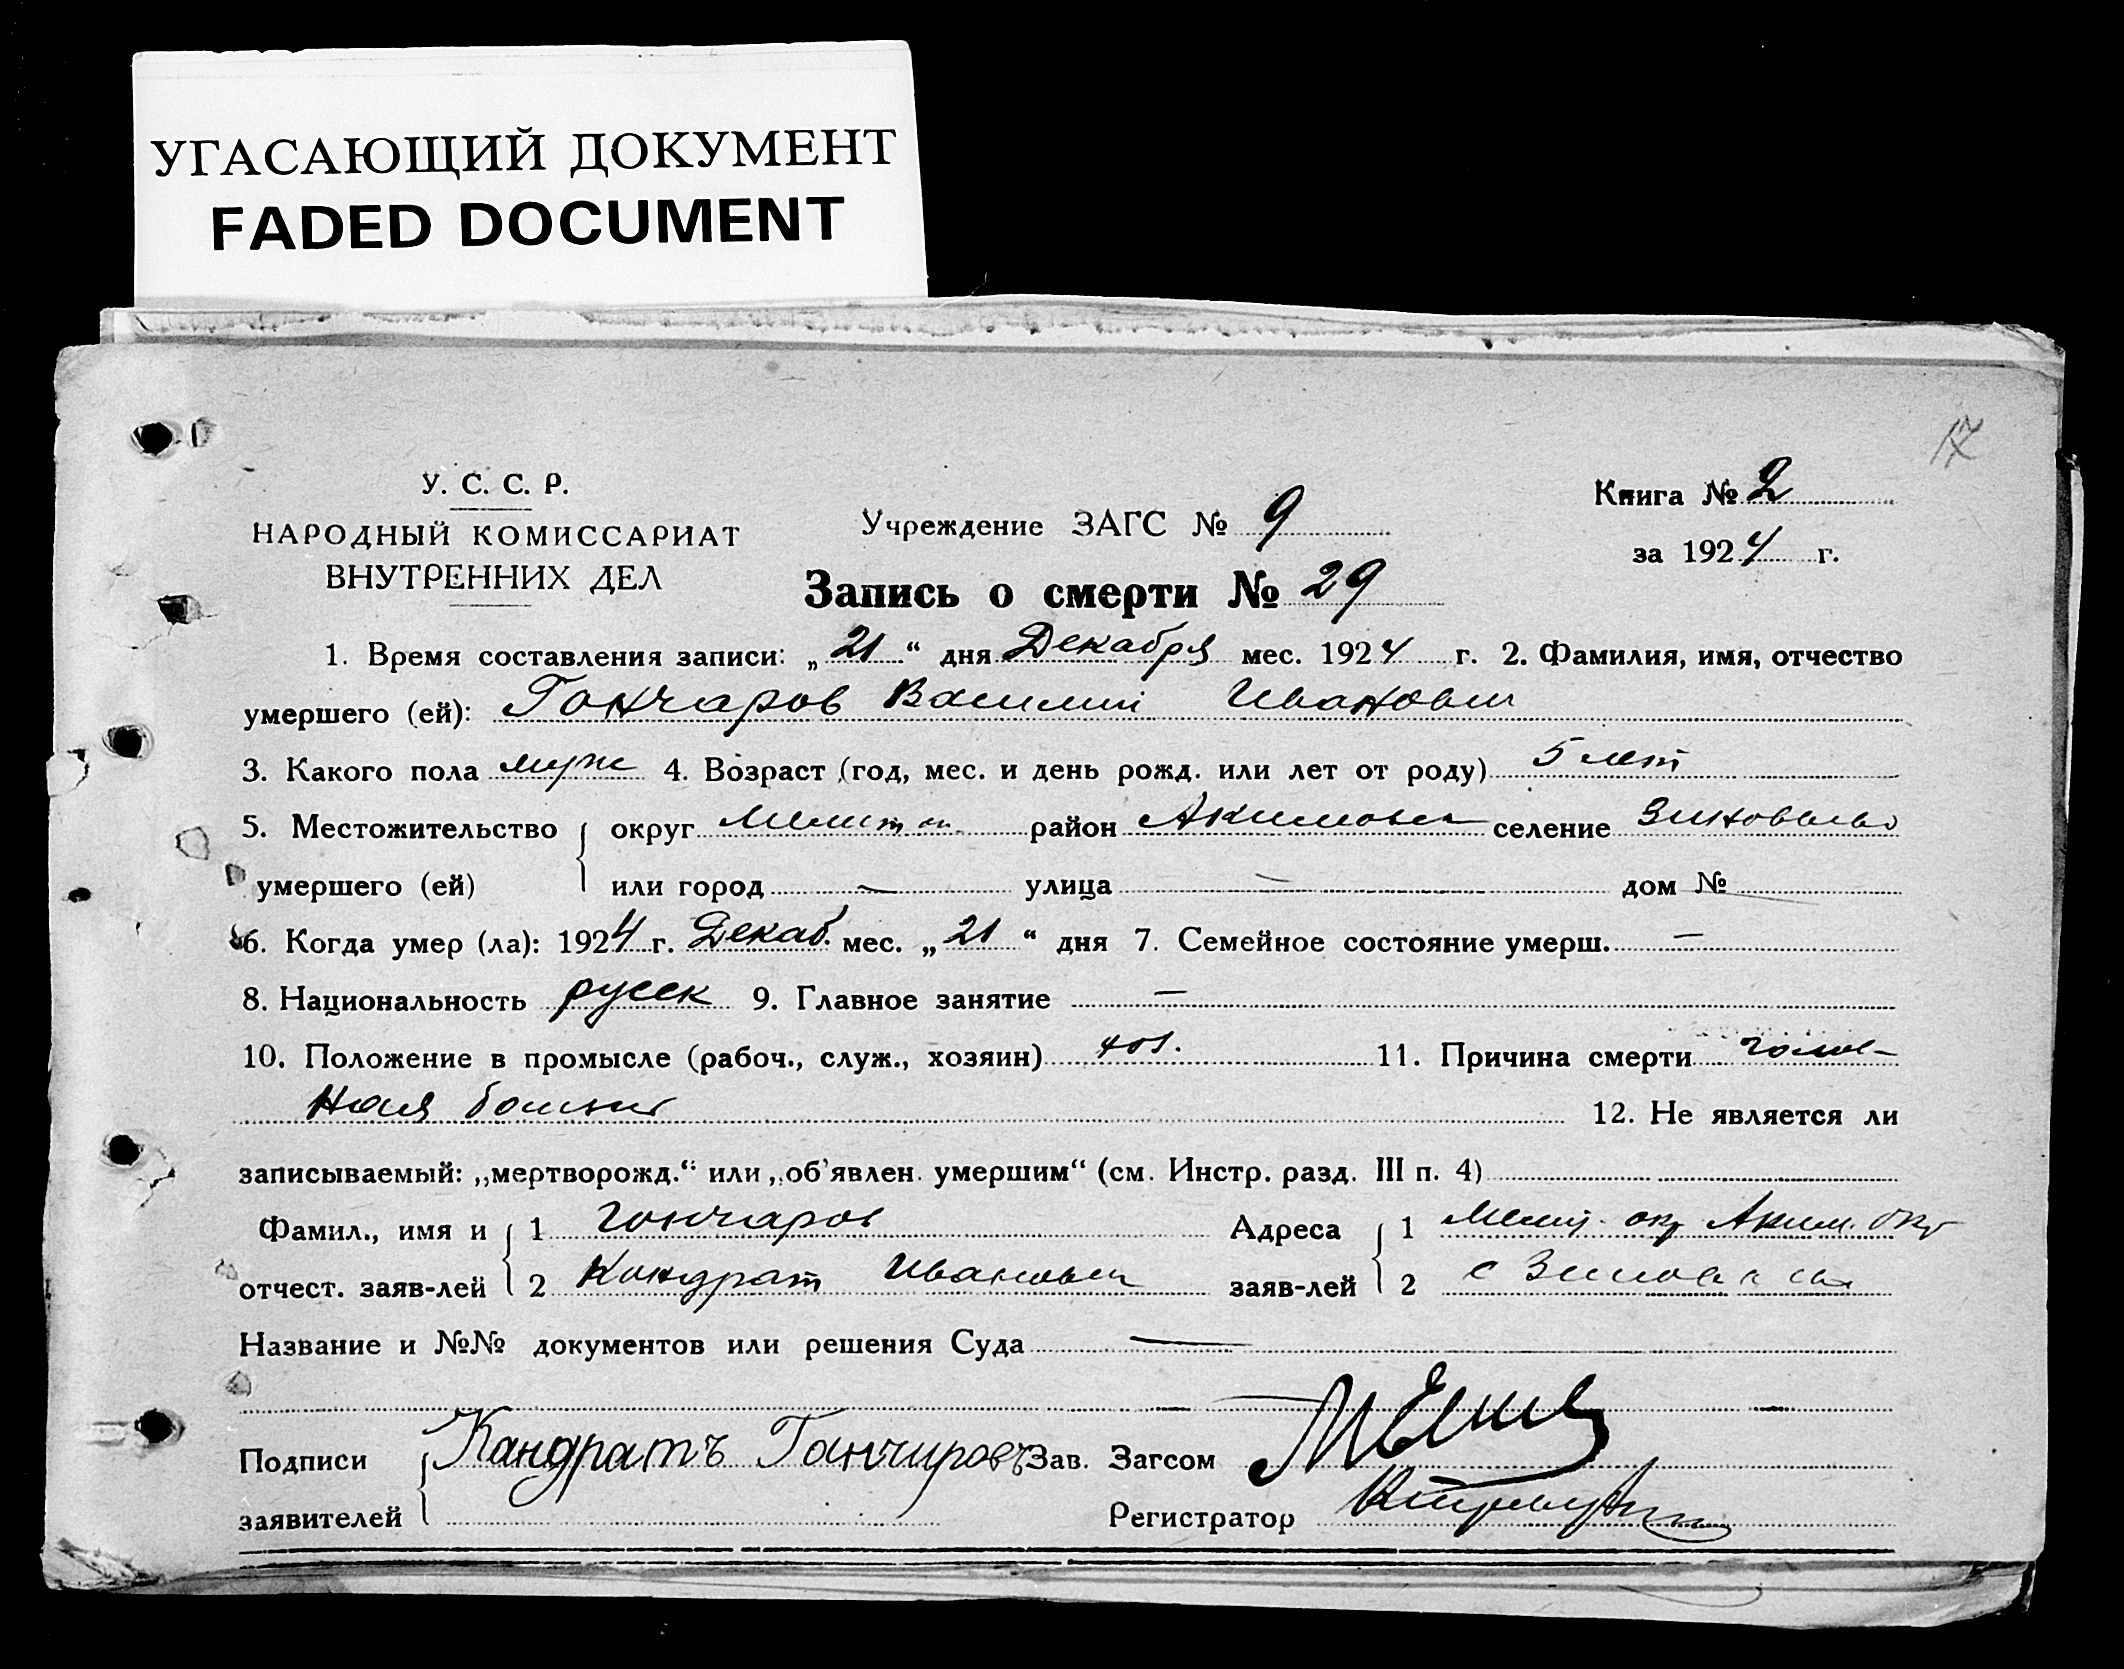 УГАСАЮЩИЙ ДОКУМЕНТ
FADED DOCUMENT
17
У. С. С. Р.
НАРОДНЫЙ КОМИССАРИАТ
ВНУТРЕННИХ ДЕЛ
Учреждение ЗАГС № 9
Запись о смерти № 29
Книга № 2
за 1924 г.
1. Время составления записи: „21“ дня Декабря мес. 1924 г. 2. Фамилия, имя, отчество
умершего (ей): Гончаров Василий Иванович
3. Какого пола муж 4. Возраст (год, мес. и день рожд. или лет от роду) 5 лет
5. Местожительство округ Мелитоп. район Акимовск селение Зиновьево
умершего (ей) или город — улица — дом № —
6. Когда умер (ла): 1924 г. Декаб. мес. „21“ дня 7. Семейное состояние умерш. —
8. Национальность русск 9. Главное занятие —
10. Положение в промысле (рабоч., служ., хозяин) хоз. 11. Причина смерти голов-
ная болезнь 12. Не является ли
записываемый: „мертворожд.“ или „об'явлен. умершим“ (см. Инстр. разд. III п. 4)
Фамил., имя и 1 Гончаров Адреса 1 Мелит. окр Аким.
отчест. заяв-лей 2 Кондрат Иванович заяв-лей 2 с
Название и №№ документов или решения Суда —
Подписи Кандратъ Ганчировъ Зав. Загсом
заявителей Регистратор